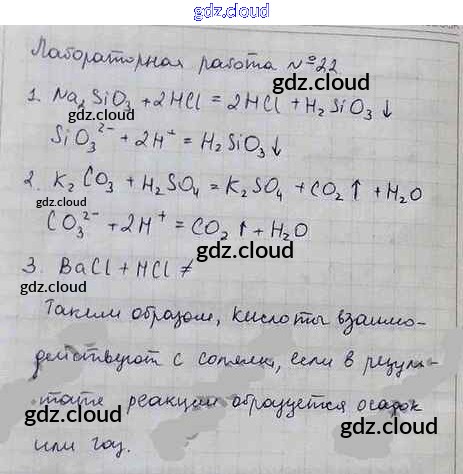 gdz.cloud
Лабораторная работа №22
gdz.cloud
1. Na₂SiO₃ + 2HCl = 2HCl + H₂SiO₃↓
gdz.cloud
SiO₃²⁻ + 2H⁺ = H₂SiO₃↓
gdz.cloud
2. K₂CO₃ + H₂SO₄ = K₂SO₄ + CO₂↑ + H₂O
gdz.cloud
CO₃²⁻ + 2H⁺ = CO₂↑ + H₂O
gdz.cloud
3. BaCl + HCl ≠
gdz.cloud
gdz.cloud
Таким образом, кислоты взаимо-
gdz.cloud
действуют с солями, если в резуль-
gdz.cloud
тате реакции образуется осадок
gdz.cloud
gdz.cloud
или газ.
gdz.cloud
gdz.cloud